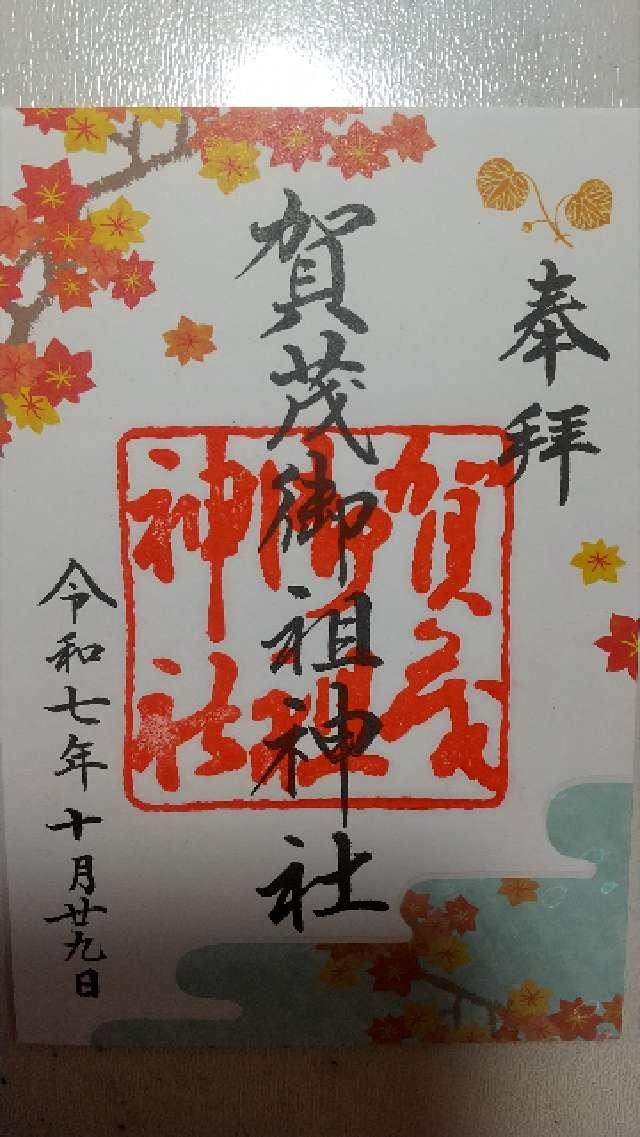 奉拝
賀茂御祖神社
賀茂
御祖
神社
令和七年十月廿九日